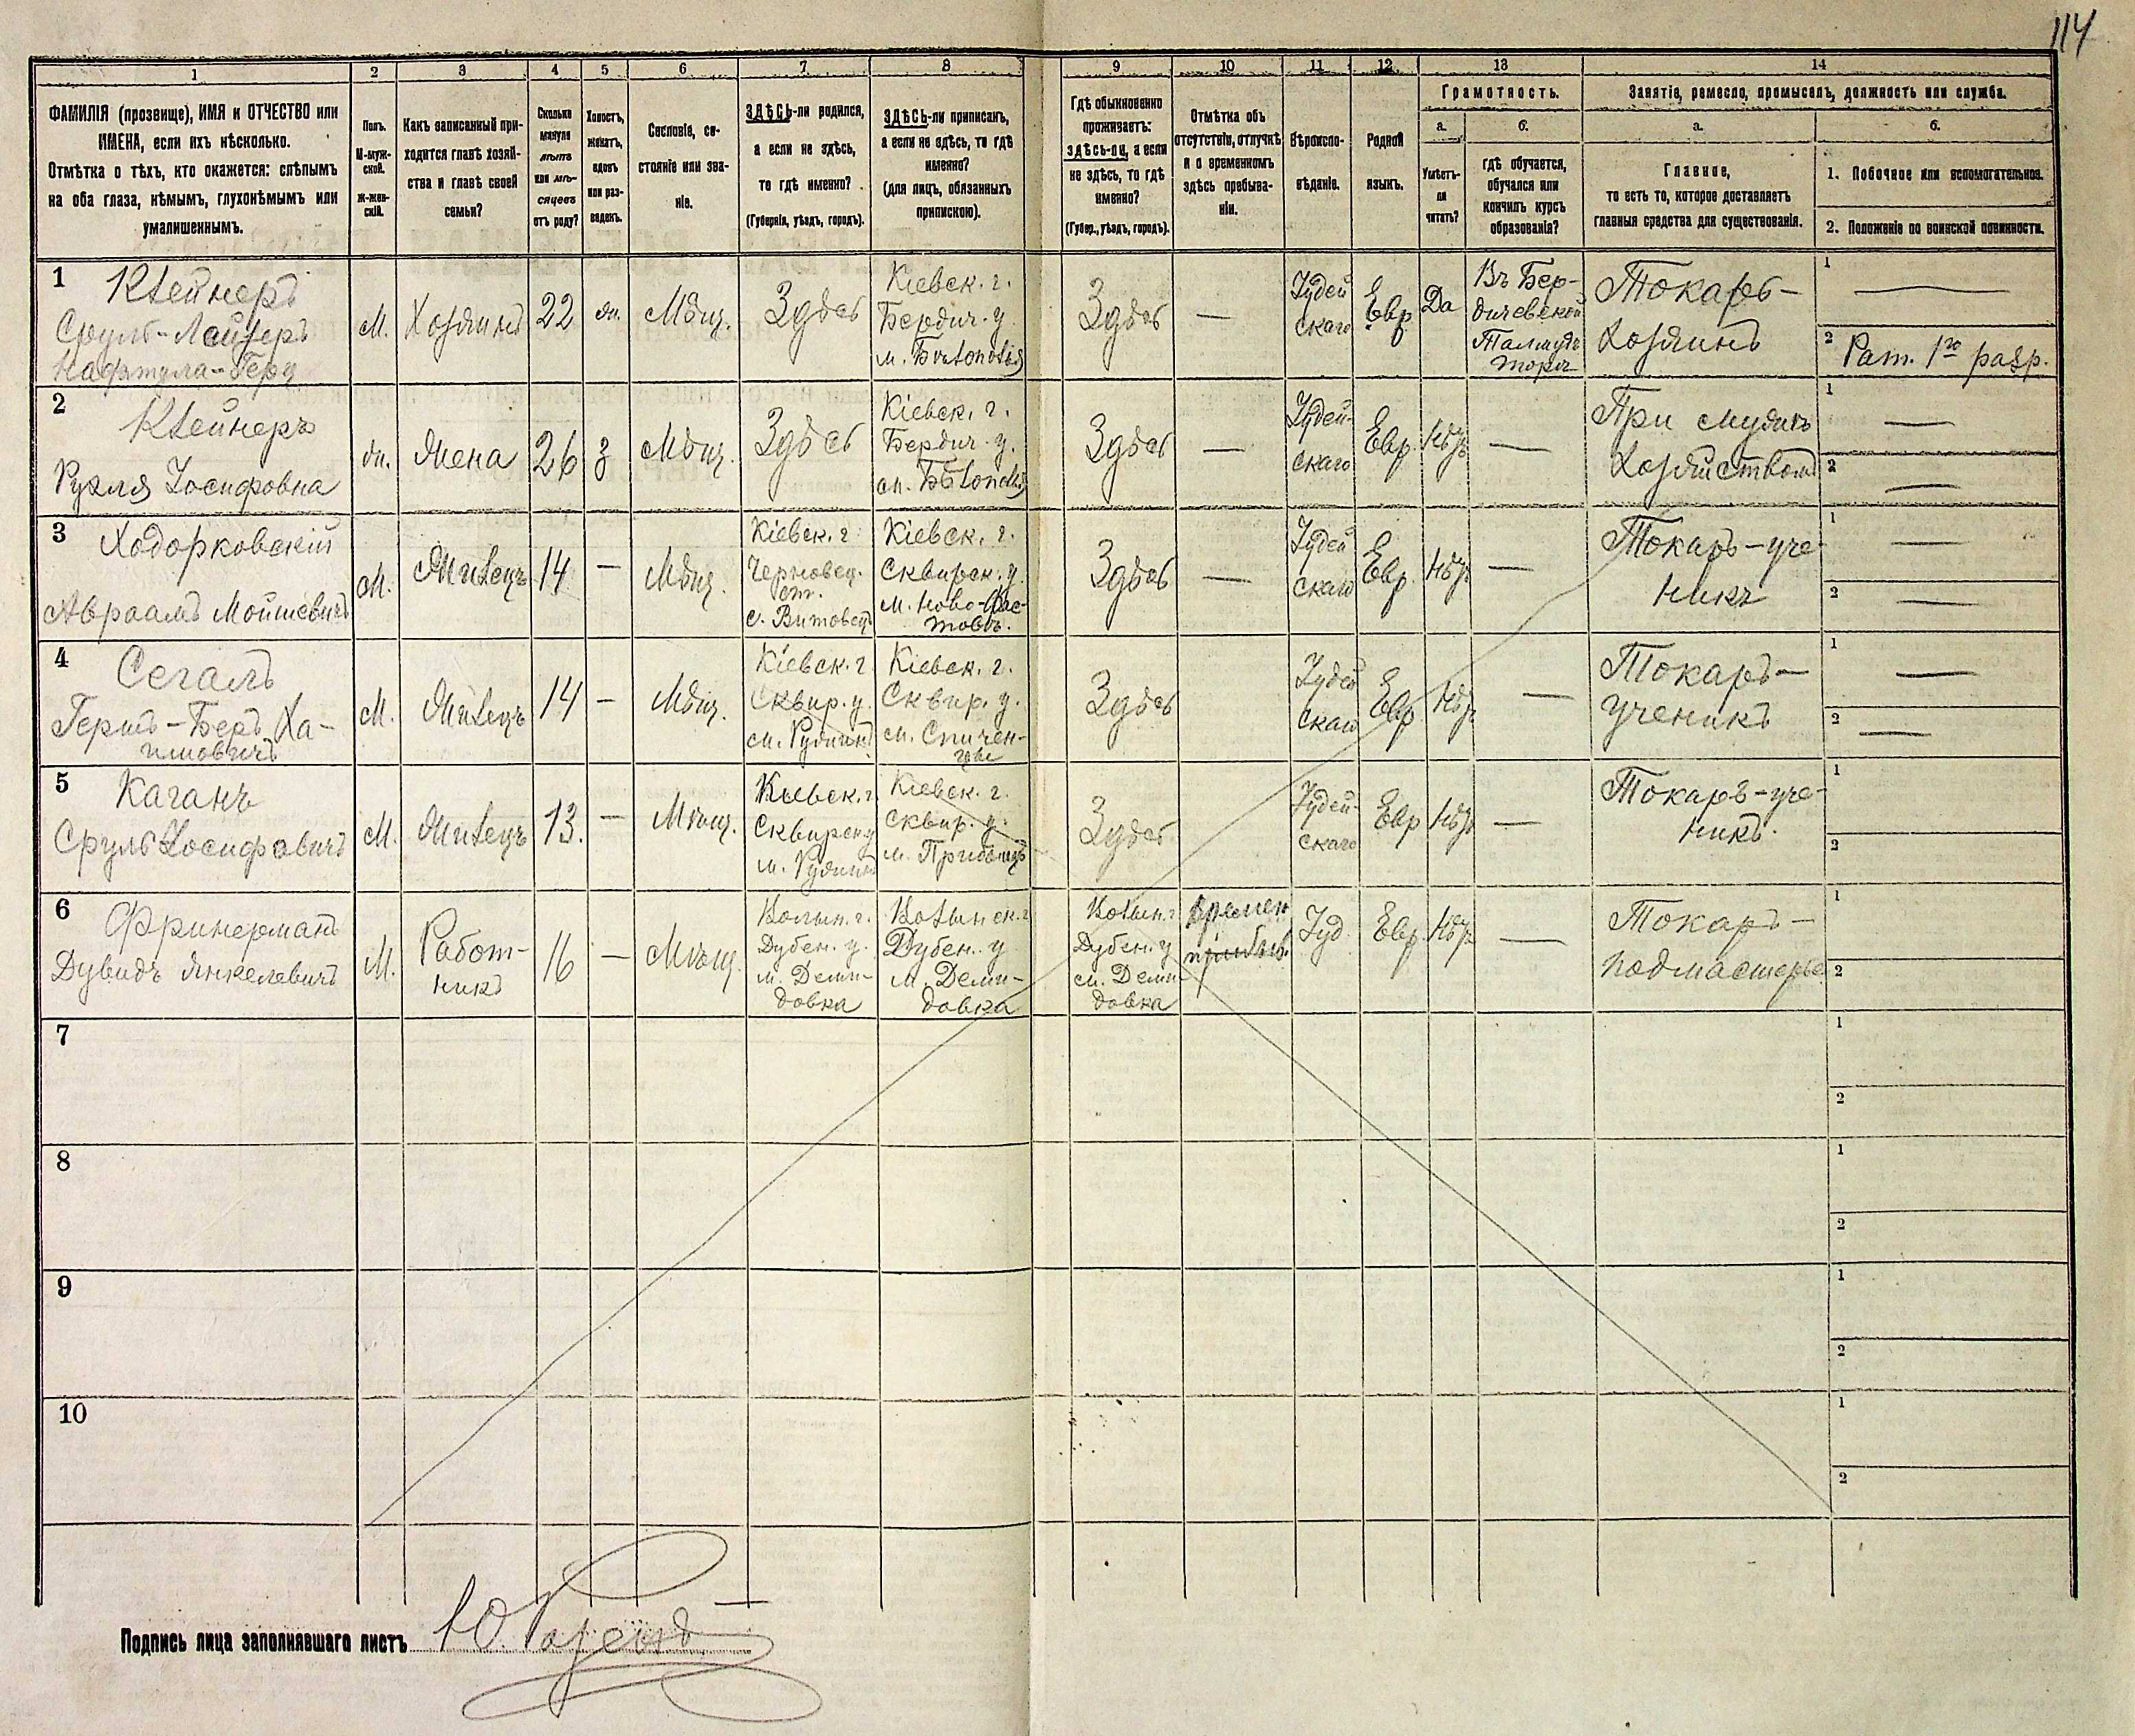 114
1 2 3 4 5 6 7 8 9 10 11 12 13 14
ФАМИЛІЯ (прозвище), ИМЯ и ОТЧЕСТВО или
ИМЕНА, если ихъ нѣсколько.
Отмѣтка о тѣхъ, кто окажется: слѣпымъ
на оба глаза, нѣмымъ, глухонѣмымъ или
умалишеннымъ.
Полъ.
М-муж-
ской.
Ж-жен-
скій.
Какъ записанный при-
ходится главѣ хозяй-
ства и главѣ своей
семьи?
Сколько
минуло
лѣтъ
или мѣ-
сяцевъ
отъ роду?
Холостъ,
женатъ,
вдовъ
или раз-
веденъ.
Сословіе, со-
стояніе или зва-
ніе.
ЗДѢСЬ-ли родился,
а если не здѣсь,
то гдѣ именно?
(Губернія, уѣздъ, городъ).
ЗДѢСЬ-ли приписанъ,
а если не здѣсь, то гдѣ
именно?
(для лицъ, обязанныхъ
припискою).
Гдѣ обыкновенно
проживаетъ:
здѣсь-ли, а если
не здѣсь, то гдѣ
именно?
(Губер., уѣздъ, городъ).
Отмѣтка объ
отсутствіи, отлучкѣ
и о временномъ
здѣсь пребыва-
ніи.
Вѣроиспо-
вѣданіе.
Родной
языкъ.
Грамотность.
а.
Умѣетъ-
ли
читать?
б.
гдѣ обучается,
обучался или
кончилъ курсъ
образованія?
Занятіе, ремесло, промыселъ, должность или служба.
а.
Главное,
то есть то, которое доставляетъ
главныя средства для существованія.
б.
1. Побочное или вспомогательное.
2. Положеніе по воинской повинности.
1
Клейнеръ
Сруль-Лейзеръ
Нафтула-Герц
М.
Хозяинъ
22
ж.
Мѣщ.
Здѣсь
Кіевск. г.
Бердич. у.
м. Бѣлополья
Здѣсь
—
Іудей
скаго
Евр
Да
Въ Бер-
дичевской
Талмудъ
торѣ
Токарь-
хозяинъ
1
—
2
Рат. 1го разр.
2
Клейнеръ
Рухля Іосифовна
ж.
Жена
26
з
Мѣщ.
Здѣсь
Кіевск. г.
Бердич. у.
м. Бѣлополья
Здѣсь
—
Іудей-
скаго
Евр.
Нѣтъ
—
При мужѣ
хозяйством
1
—
2
—
3
Ходорковскій
Авраамъ Мойшевичъ
М.
Жилецъ
14
—
Мѣщ.
Кіевск. г
Черновец.
ст.
с. Витовец
Кіевск. г.
Сквирск. у.
м. Ново-Фас-
товъ.
Здѣсь
—
Іудей
скаго
Евр.
Нѣтъ
—
Токарь-уче-
никъ
1
—
2
—
4
Сегалъ
Гершъ-Беръ Ха-
имовичъ
М.
Жилецъ
14
—
Мѣщ.
Кіевск. г
Сквир. у.
м. Ружинъ
Кіевск. г.
Сквир. у.
м. Спичен-
цы
Здѣсь
Іудей
скаго
Евр
Нѣтъ
—
Токарь-
ученикъ
1
—
2
—
5
Каганъ
Сруль Іосифовичъ
М.
Жилецъ
13.
—
Мѣщ.
Кіевск. г.
Сквирск. у
м. Ружинъ
Кіевск. г.
Сквир. у.
Здѣсь
Іудей-
скаго
Евр
Нѣтъ
—
Токарь-уче-
никъ.
1
2
6
Фринерманъ
Дувидъ Янкелевичъ
М.
Работ-
никъ
16
—
Мѣщ.
Волын. г.
Дубен. у.
м. Деми-
довка
Волынск. г
Дубен. у
м. Деми-
довка
Волын. г
Дубен. у
м. Деми-
довка
времен
пребыв.
Іуд.
Евр.
Нѣтъ
—
Токарь-
подмастерье
1
2
7
1
2
8
1
2
9
1
2
10
1
2
Подпись лица заполнявшаго листъ